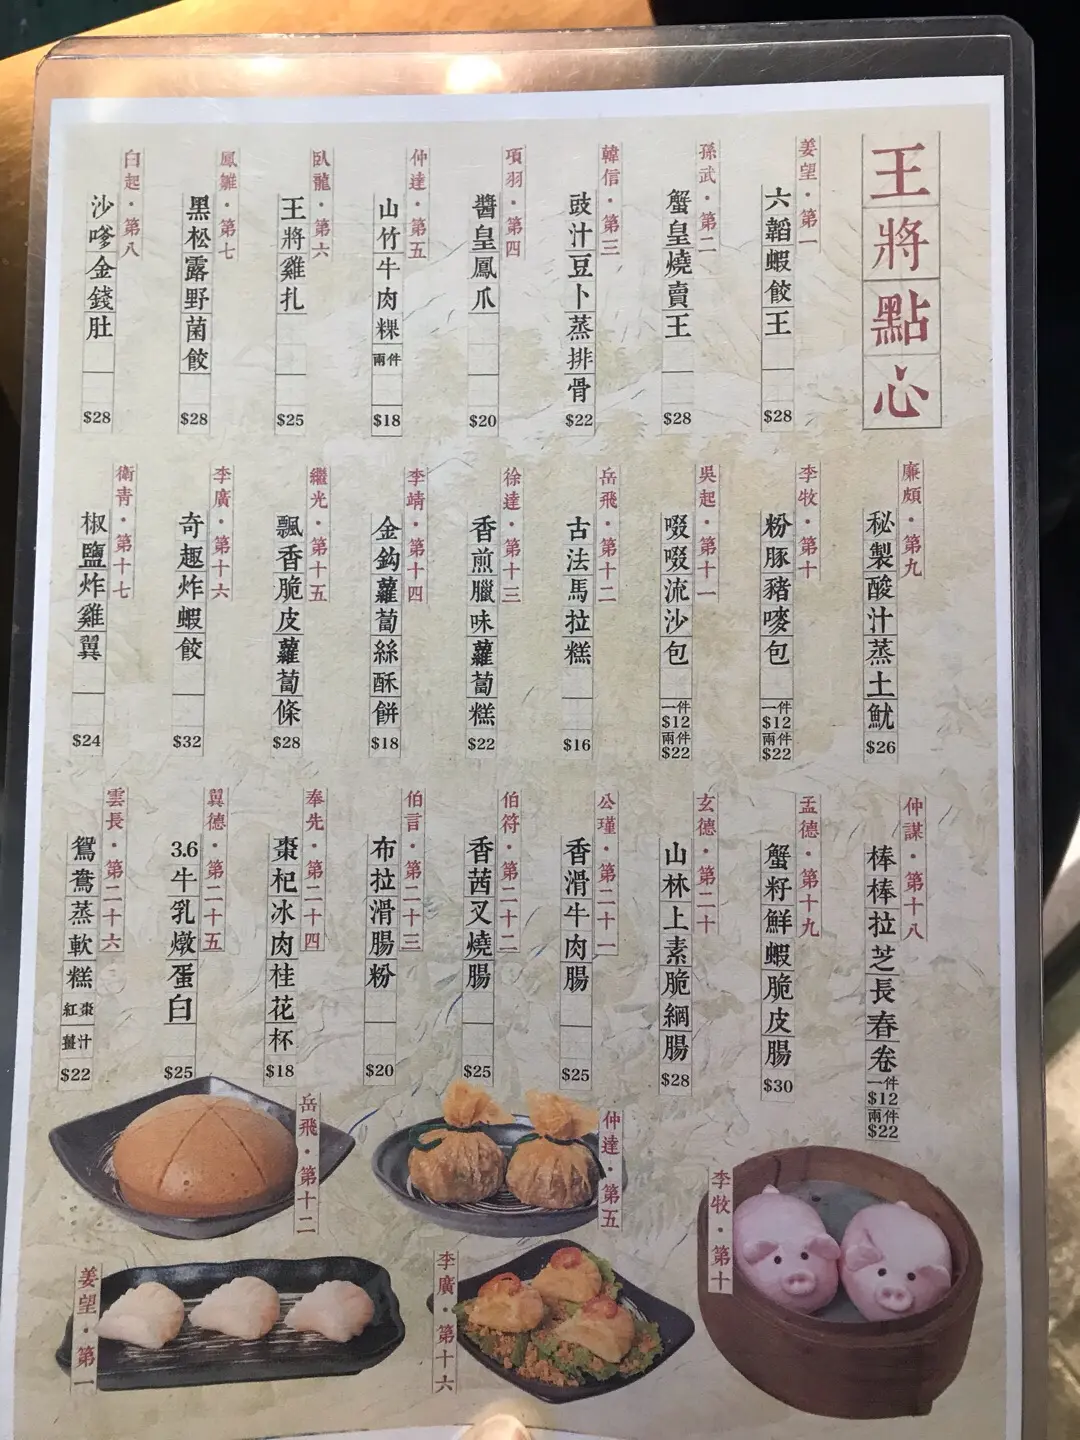 王將點心
姜望・第一
六韜蝦餃王
$28
孫武・第二
蟹皇燒賣王
$28
韓信・第三
豉汁豆卜蒸排骨
$22
項羽・第四
醬皇鳳爪
$20
仲達・第五
山竹牛肉粿
兩件
$18
臥龍・第六
王將雞扎
$25
鳳雛・第七
黑松露野菌餃
$28
白起・第八
沙嗲金錢肚
$28
廉頗・第九
秘製酸汁蒸土魷
$26
李牧・第十
粉豚豬嘜包
一件
$12
兩件
$22
吳起・第十一
啜啜流沙包
一件
$12
兩件
$22
岳飛・第十二
古法馬拉糕
$16
徐達・第十三
香煎臘味蘿蔔糕
$22
李靖・第十四
金鈎蘿蔔絲酥餅
$18
繼光・第十五
飄香脆皮蘿蔔條
$28
李廣・第十六
奇趣炸蝦餃
$32
衛青・第十七
椒鹽炸雞翼
$24
仲謀・第十八
棒棒拉芝長春卷
一件
$12
兩件
$22
孟德・第十九
蟹籽鮮蝦脆皮腸
$30
玄德・第二十
山林上素脆網腸
$28
公瑾・第二十一
香滑牛肉腸
$25
伯符・第二十二
香茜叉燒腸
$25
伯言・第二十三
布拉滑腸粉
$20
奉先・第二十四
棗杞冰肉桂花杯
$18
翼德・第二十五
3.6牛乳燉蛋白
$25
雲長・第二十六
鴛鴦蒸軟糕
紅棗
薑汁
$22
岳飛・第十二
仲達・第五
李牧・第十
姜望・第一
李廣・第十六